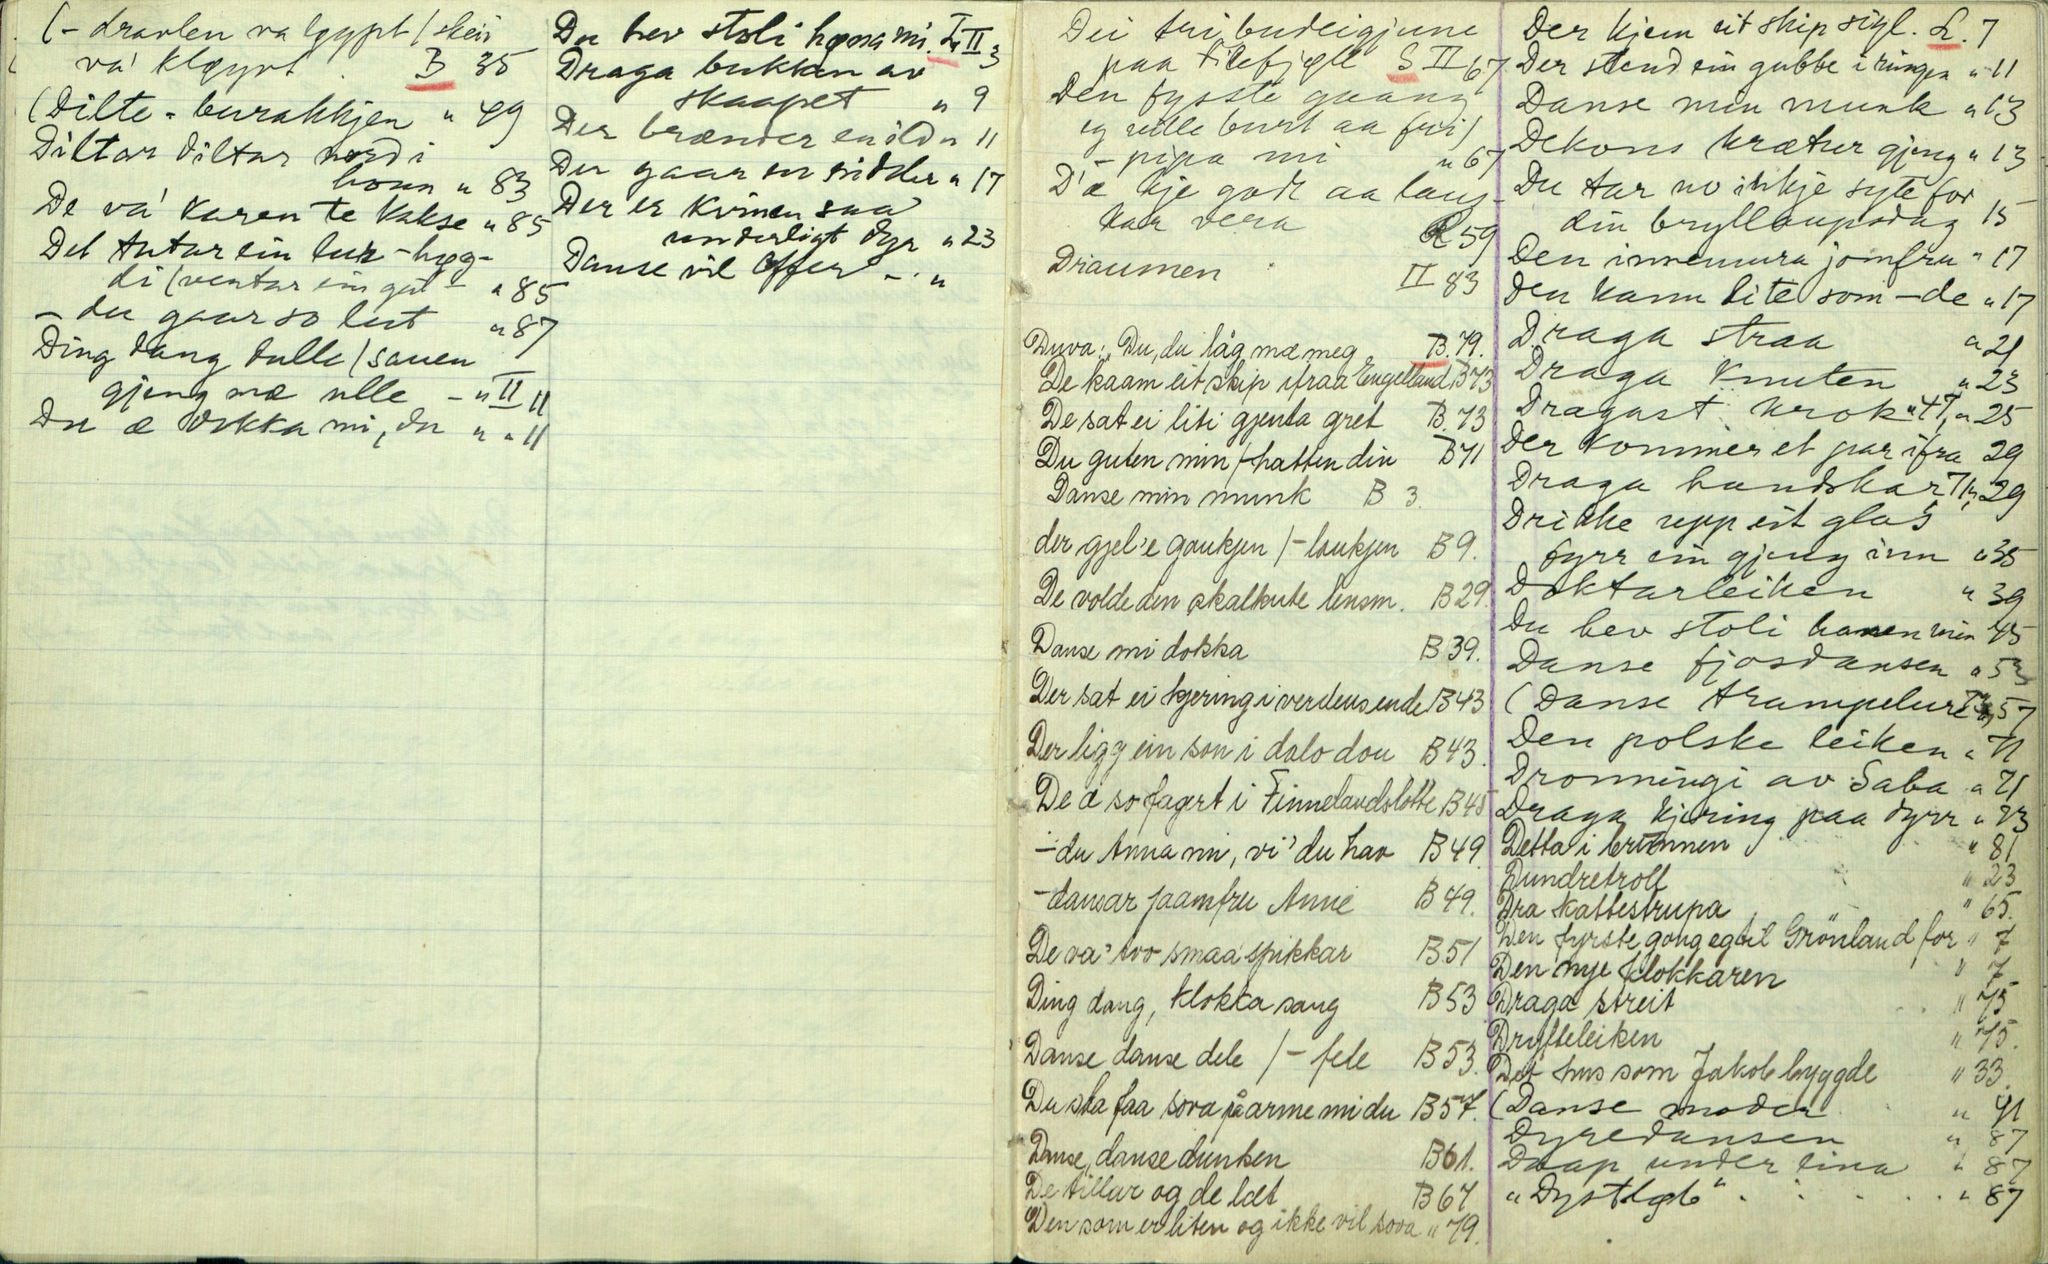 (- dravlen va löypt / skeii
va' kløyvt . B 35
(Dilte - burakkjen " 49
Diltar diltar nord i
houn " 83
De va' Karen te Kakse " 85
Det tutar ein lur - høg-
di (ventar ein gut - " 85
- du gaar so lint " 87
Ding dang dulle / sauen
gjeng mæ ulle - " II 11
Du æ dokka mi, du " " 11
Du hev stoli høna mi. L II 3
Draga bukken av
skaapet " 9
Der brænder en ild " 11
Der gaar en ridder " 17
Der er kvinen saa
underligt dyr " 23
Danse vil Offer - . "
Dei tri budeigjune
paa Filefjell S II 67
Den fysste gaang
eg ville burt aa fri /
- pipa mi " 67
D'æ kje godt aa laus-
kar vera R 59
Draumen II 83
Duva: "Du, du låg mæ meg B. 79.
De kaam eit skip ifraa Engelland B 73
De sat ei liti gjenta gret B. 73
Du guten min / hatten din B 71
Danse min munk B 3.
der gjel'e gaukjen / - laukjen B 9.
De volde den skalkute lensm. B 29.
Danse mi dokka B 39.
Der sat ei kjering i verdens ende B 43
Der ligg ein son i dalo dou B 43.
De æ so fagert i Finnelandslotte B 45
- du Anna mi, vi' du hav B 49
- dansar jaamfru Anne B 49.
De va' tvo smaa spikkar B 51
Ding dang, klokka sang B 53
Danse danse dele / - fele B 53.
Du ska faa sova på arme mi du B 57.
Danse, danse dunken B 61.
De tillar og de læt B 67
Den som er liten og ikke vil sova " 79.
Der kjem eit skip sigl. L. 7
Der stend ein gubbe i ringen " 11
Danse min munk " 13
Dekons krætur gjeng " 13
Du tar no ikkje syte for
din bryllaupsdag 15
Den innemura jomfru " 17
Den kann lite som - de " 17
Draga straa " 21
Draga Knuten " 23
Dragast krok " 47, " 25
Der kommer et par ifra 29
Draga handskar 71, " 29
Drikke upp eit glas
fyrr ein gjeng inn " 35
Doktarleiken " 39
Du hev stoli hanen min 45
Danse fjosdansen " 53
(Danse trampelure " 57
Den polske leiken " 71
Dronningi av Saba " 71
Draga kjering paa dyrr " 73
Detta i brunnen " 81
Dundretroll " 23
Dra kattestrupa " 65.
Den fyrste gong eg til Grönland for " 7
Den nye klokkaren " 7
Draga streit " 75
Drifteleiken " 75.
Det hus som Jakob byggde " 33.
(Danse moder " 41
Dyredansen " 87
Daap under lina " 87
"Dystløb" . . . . . " 87